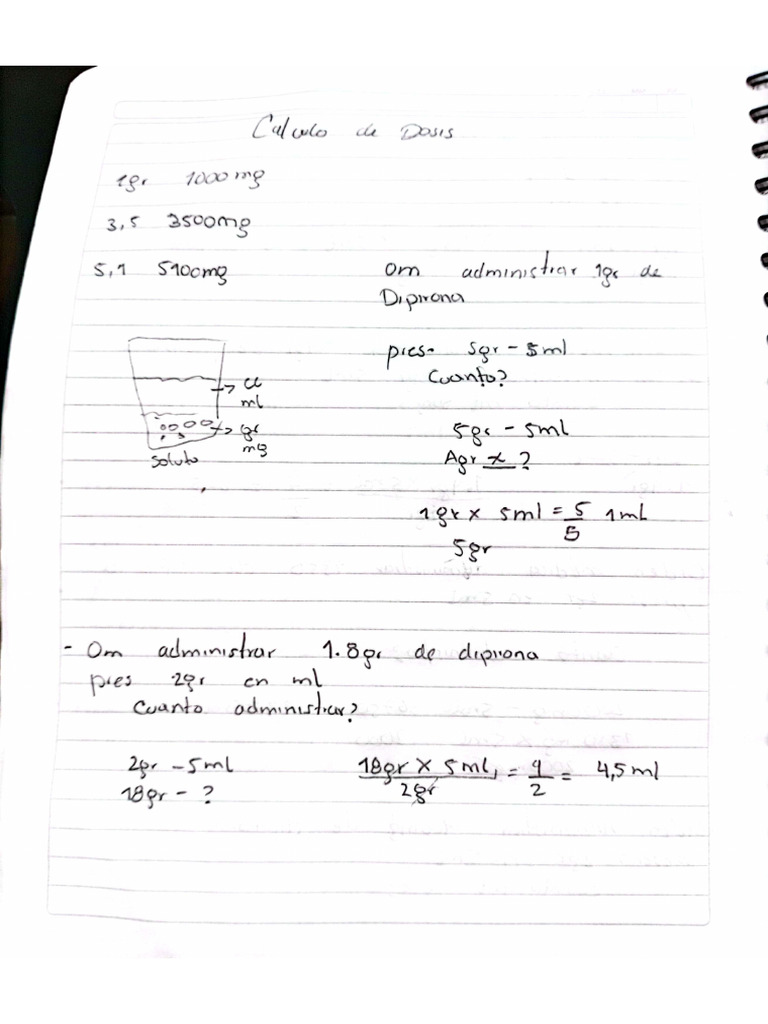 Calculo de Dosis
1gr 1000mg
3,5 3500mg
5,1 5100mg
Om administrar 1gr de
Dipirona
pres- 5gr - 5ml
Cuanto?
cc
ml
gr
mg
soluto
5gr - 5ml
1gr x ?
1gr x 5ml = 5 1ml
5gr 5
- Om administrar 1.8gr de dipirona
pres 2gr en ml
Cuanto administrar?
2gr - 5ml
18gr - ?
18gr x 5ml = 9 = 4,5ml
2gr 2